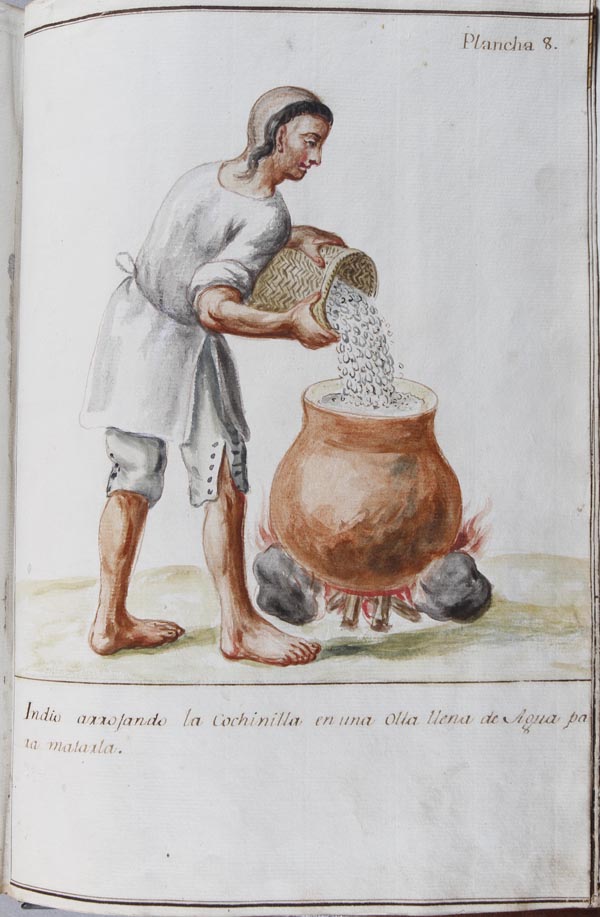 Plancha 8.
Indio arrojando la Cochinilla en una Olla llena de Agua pa
ra matarla.